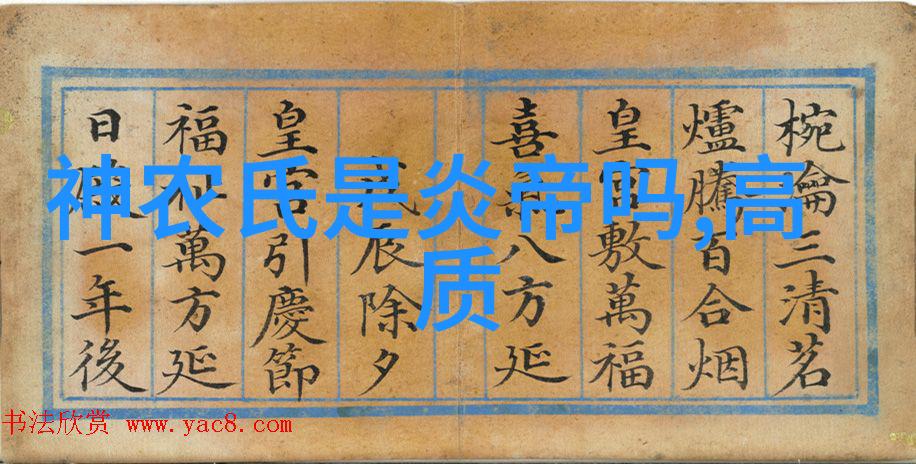 椀瀹三清茗
爐騰百合烟
皇宮敷萬福
喜八方延
辰除夕
皇宮引慶節
福萬方延
日一年後
神农氏是炎帝吗,高
质
书法欣赏 www.yac8.com